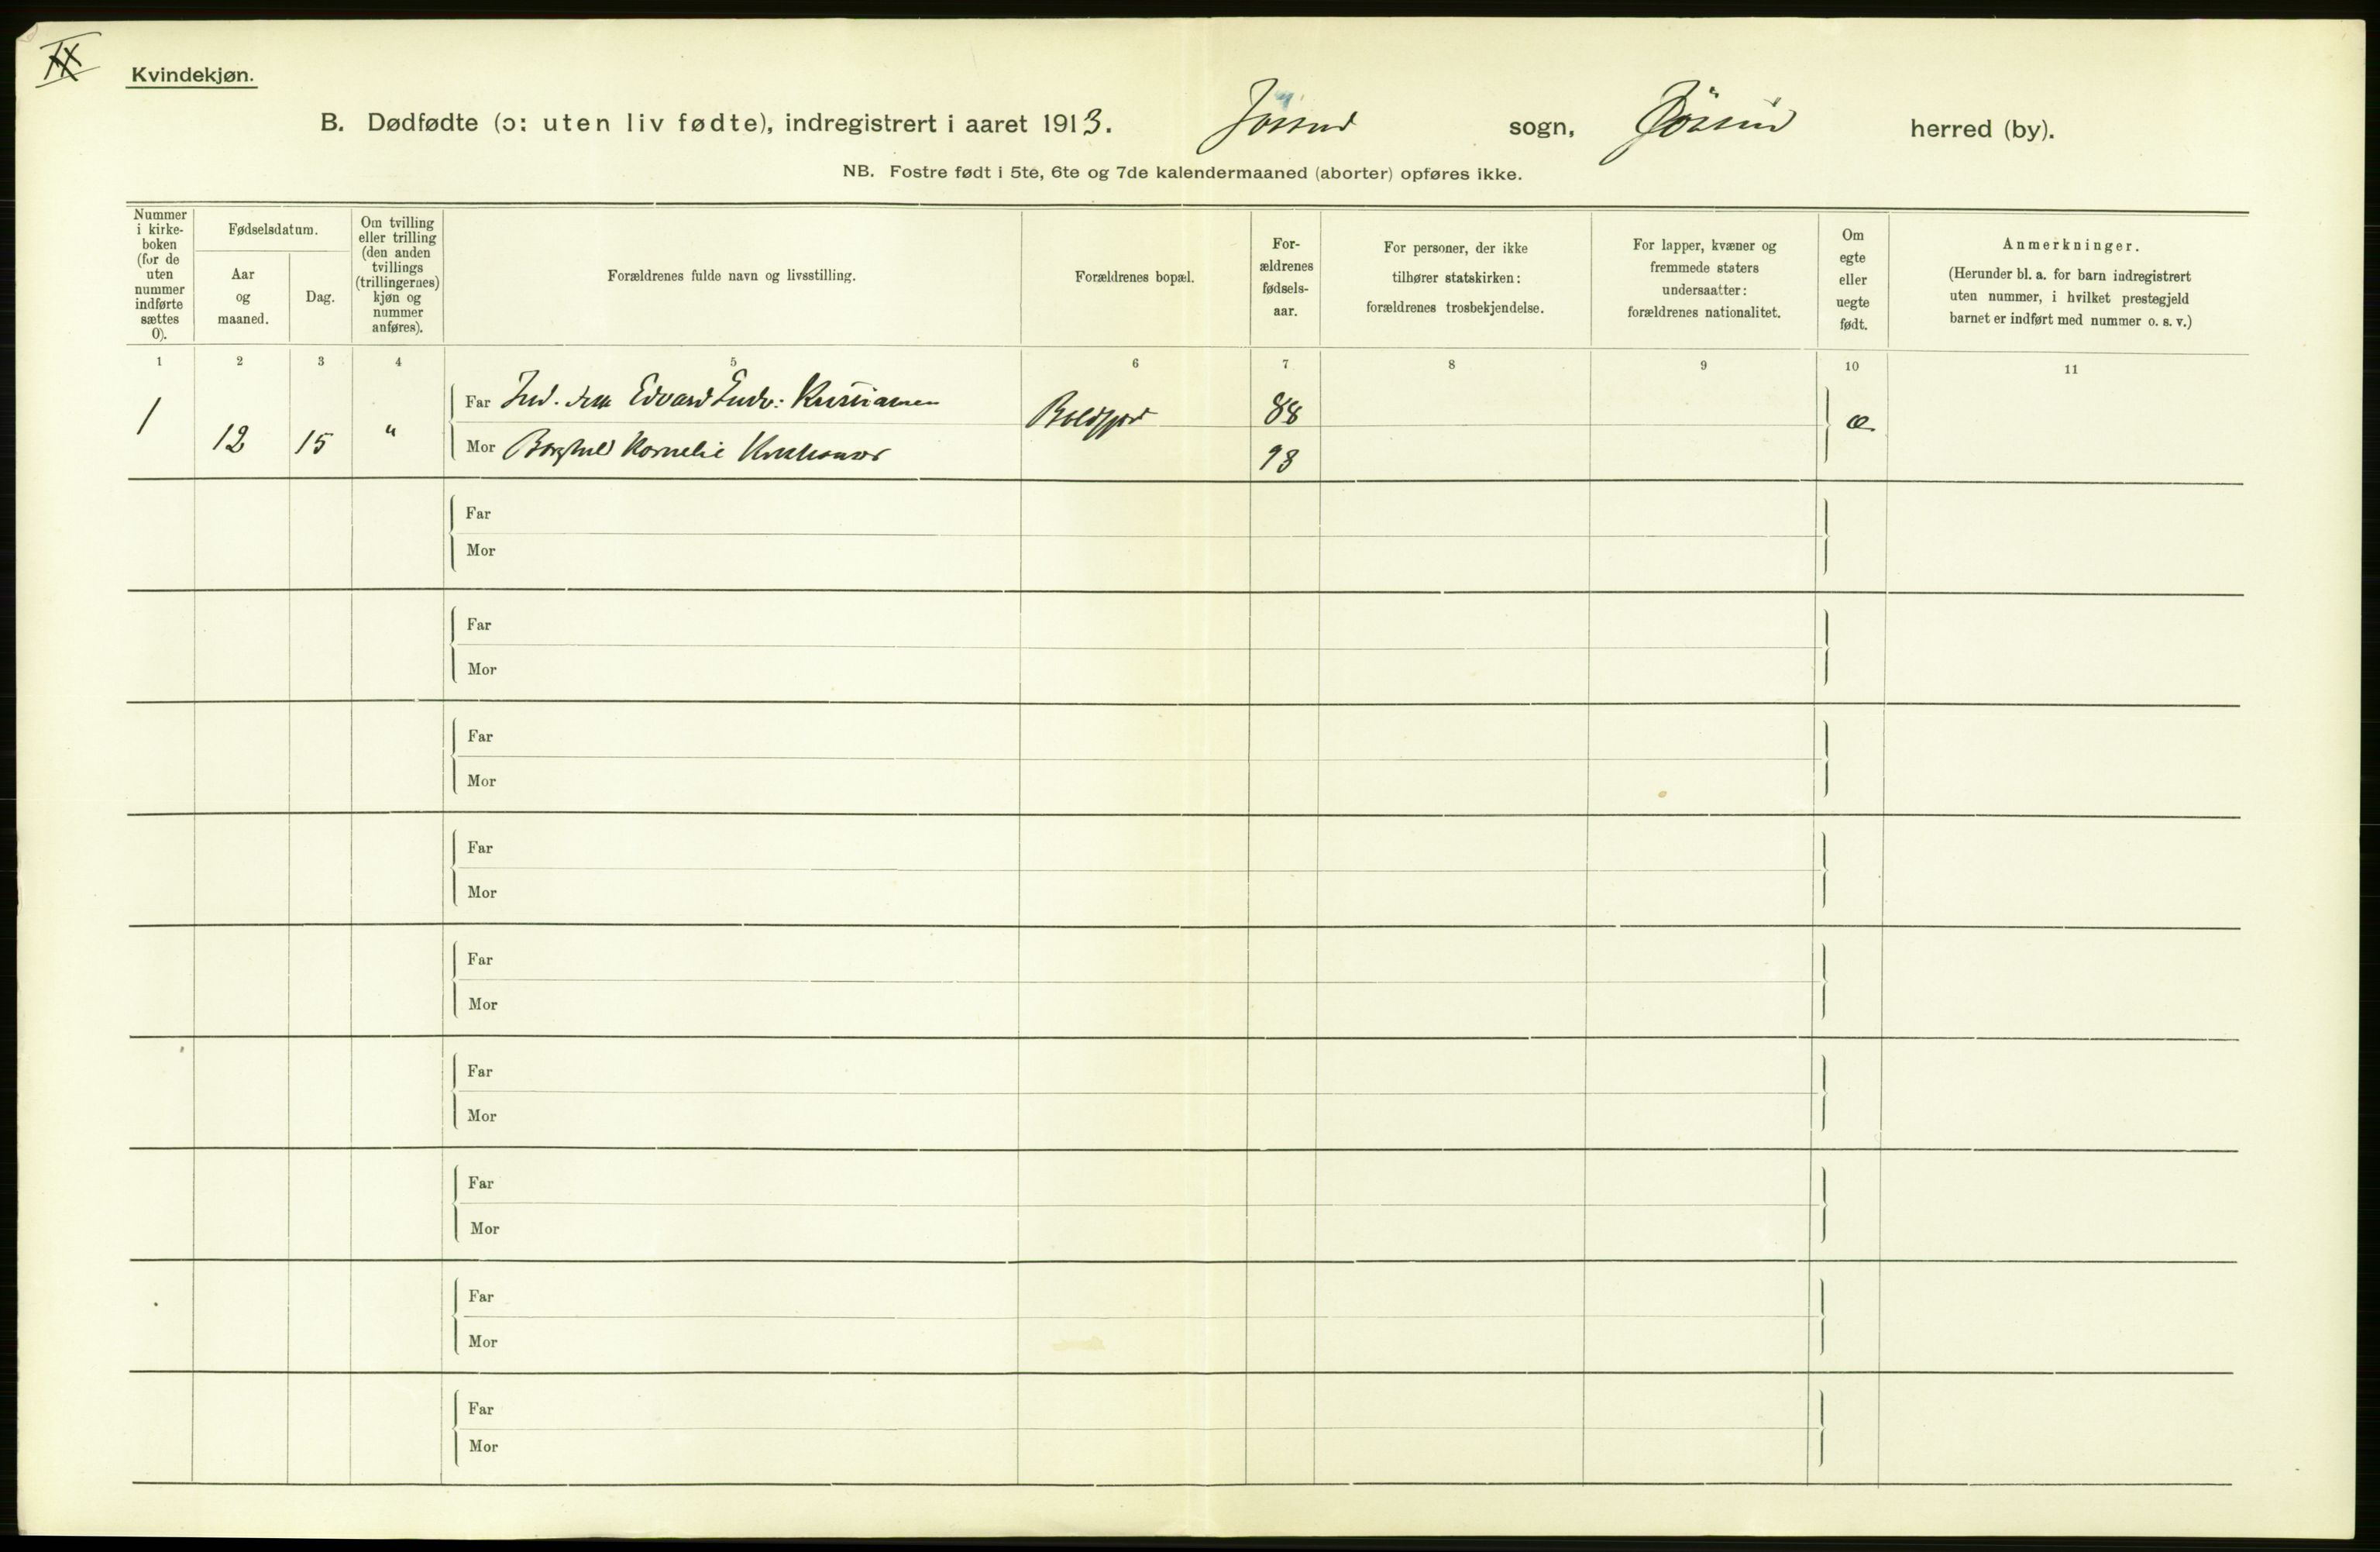 Kvindekjøn.
B. Dødfødte (ɔ: uten liv fødte), indregistrert i aaret 1913. Jössund sogn, Jössund herred (by).
NB. Fostre født i 5te, 6te og 7de kalendermaaned (aborter) opføres ikke.
Nummer i kirke- boken (for de uten nummer indførte sættes 0).
Fødselsdatum.
Aar og maaned.
Dag.
Om tvilling eller trilling (den anden tvillings (trillingernes) kjøn og nummer anføres).
Forældrenes fulde navn og livsstilling.
Forældrenes bopæl.
For- ældrenes fødsels- aar.
For personer, der ikke tilhører statskirken: forældrenes trosbekjendelse.
For lapper, kvæner og fremmede staters undersaatter: forældrenes nationalitet.
Om egte eller uegte født.
Anmerkninger.
(Herunder bl. a. for barn indregistrert uten nummer, i hvilket prestegjeld barnet er indført med nummer o. s. v.)
1 2 3 4 5 6 7 8 9 10 11
1 12 15 "
Far Edvard Kristiansen 88 æ.
Mor Borghild Kornelie 93
Far
Mor
Far
Mor
Far
Mor
Far
Mor
Far
Mor
Far
Mor
Far
Mor
Far
Mor
Far
Mor